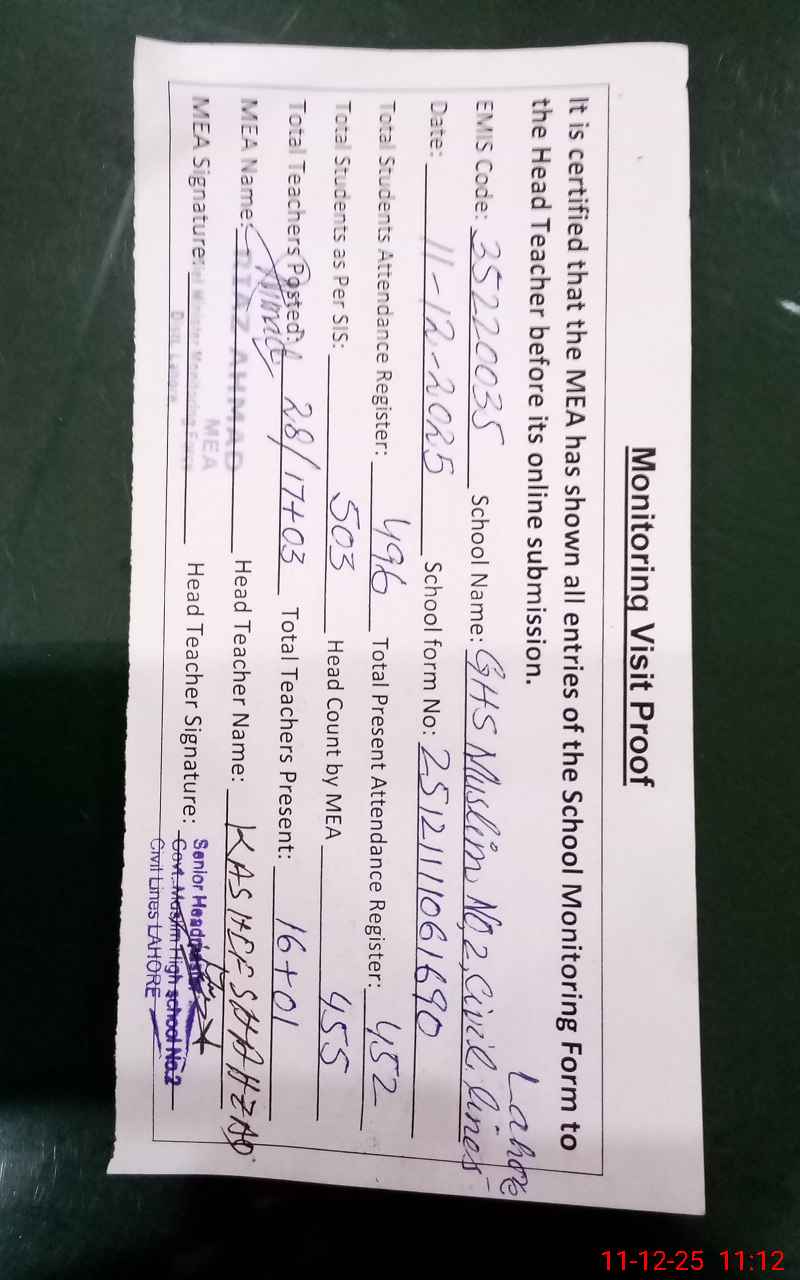 Monitoring Visit Proof
It is certified that the MEA has shown all entries of the School Monitoring Form to
the Head Teacher before its online submission.
EMIS Code: 35220035 School Name: GHS Muslim No, 2, Civil lines Lahore
Date: 11-12-2025 School form No: 25121111061690
Total Students Attendance Register: 496 Total Present Attendance Register: 452
Total Students as Per SIS: 503 Head Count by MEA 455
Total Teachers Posted: 28/17+03 Total Teachers Present: 16+01
MEA Name: RIAZ AHMAD Head Teacher Name: KASHEF SHAHZAD
MEA
MEA Signature: Head Teacher Signature:
Monitoring Force
Distt. Lahore
Senior Headmaster
Govt. Muslim High school No.2
Civil Lines LAHORE
11-12-25 11:12